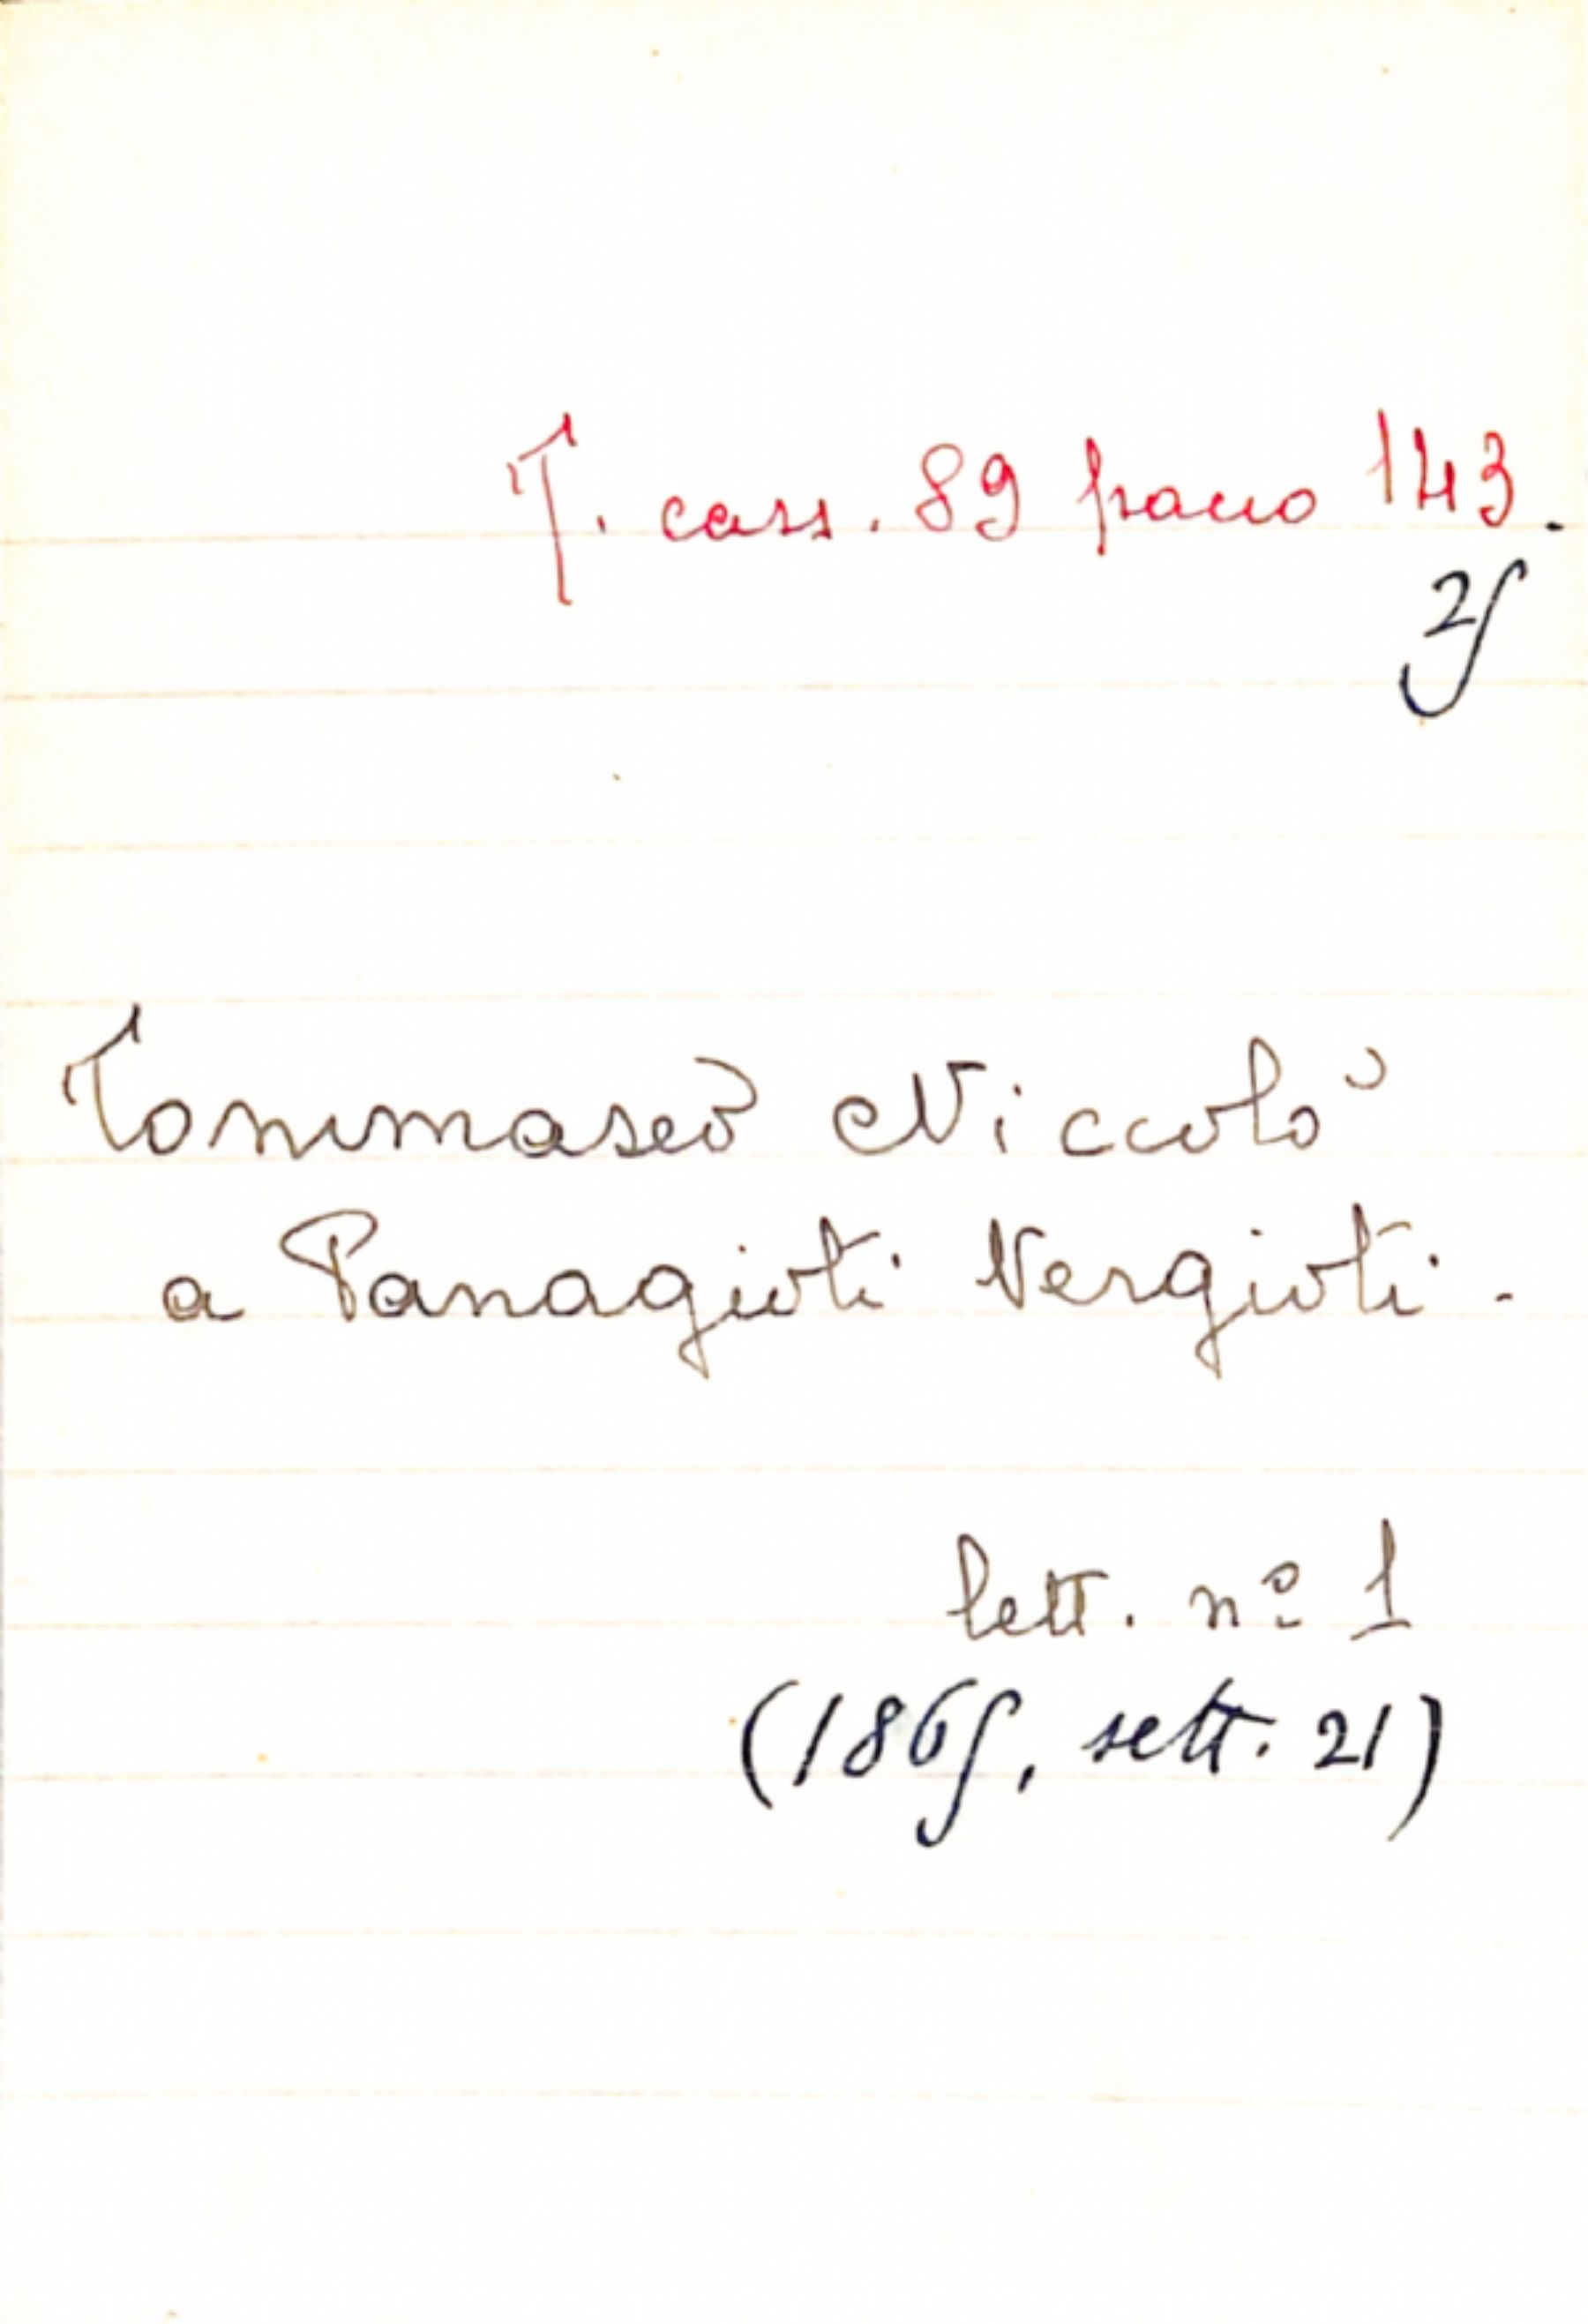 T. cass. 89 pacco 143.
25
Tommaseo Niccolò
a Panagioti Vergioti.
lett. nº 1
(1865, sett. 21)